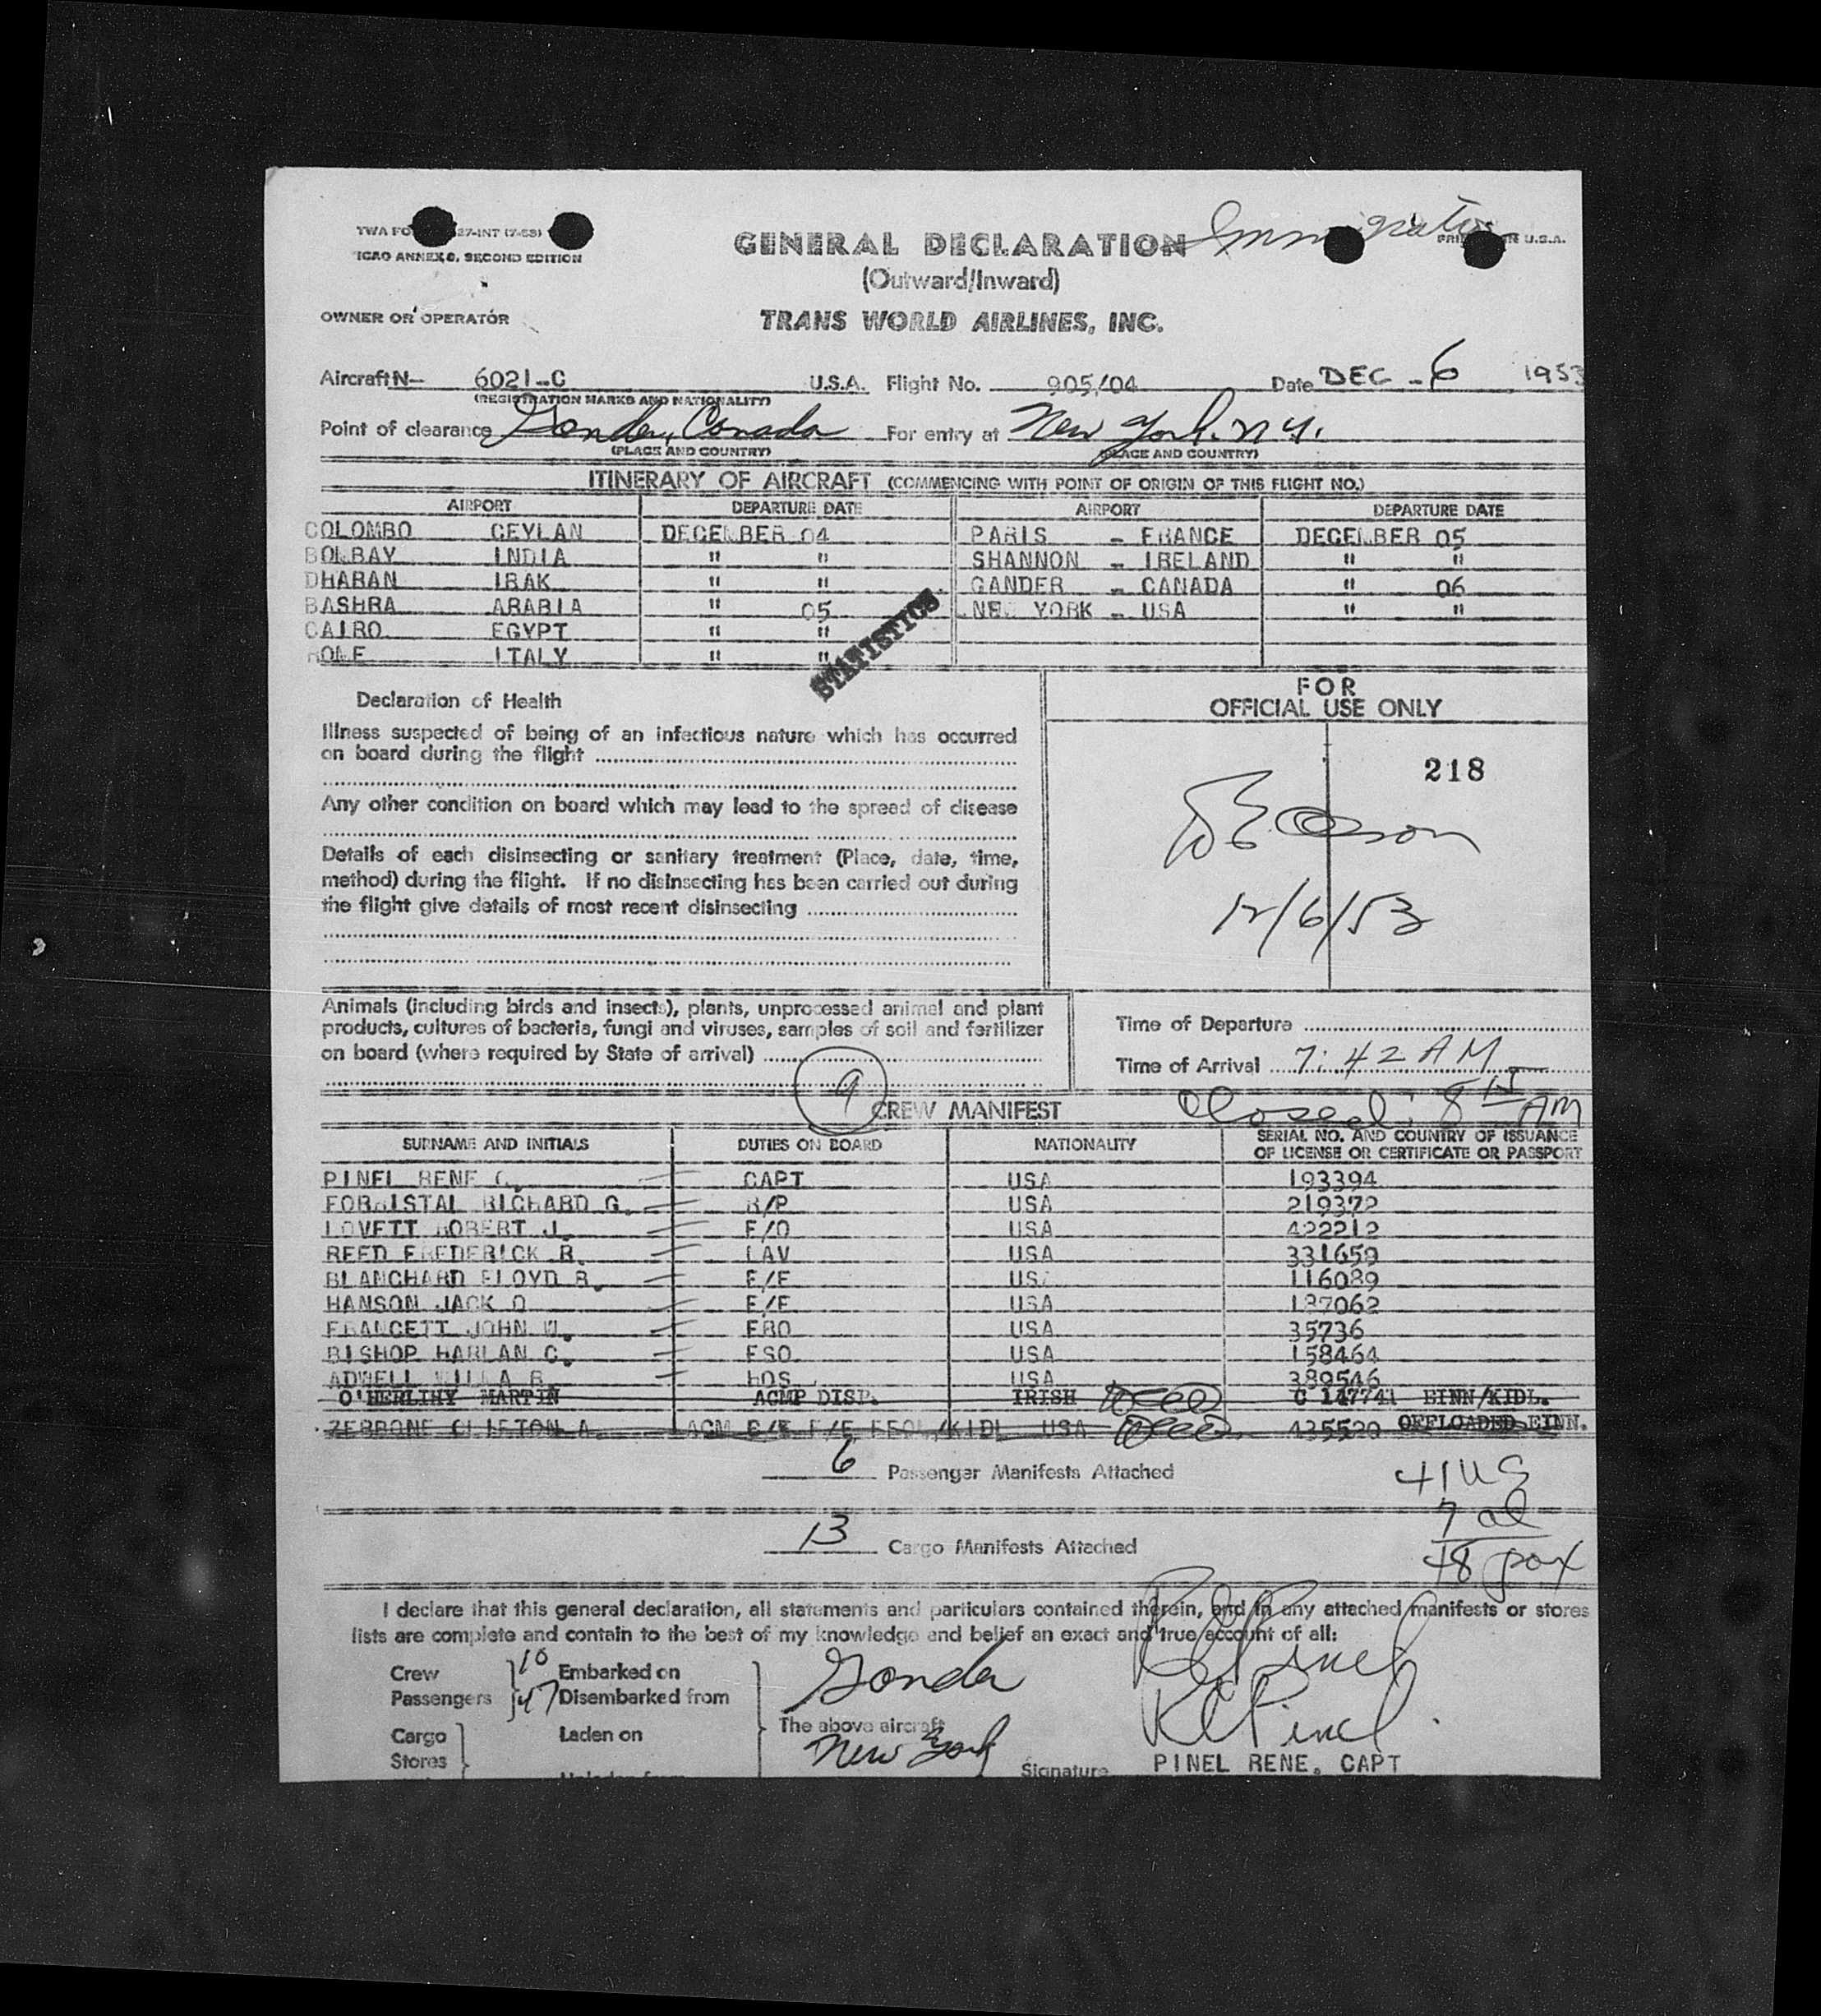 TWA FO 27-INT (7-53)
ICAO ANNEX 8, SECOND EDITION
Immigration
U.S.A.
GENERAL DECLARATION
(Outward/Inward)
OWNER OR OPERATOR
TRANS WORLD AIRLINES, INC.
Aircraft N- 6021-C U.S.A. Flight No. 905/04 Date DEC - 6 1953
(REGISTRATION MARKS AND NATIONALITY)
Point of clearance Gander, Canada For entry at New York. N.Y.
(PLACE AND COUNTRY) (PLACE AND COUNTRY)
ITINERARY OF AIRCRAFT (COMMENCING WITH POINT OF ORIGIN OF THIS FLIGHT NO.)
AIRPORT DEPARTURE DATE AIRPORT DEPARTURE DATE
COLOMBO CEYLAN DECEMBER 04 PARIS - FRANCE DECEMBER 05
BOMBAY INDIA " " SHANNON - IRELAND " "
DHARAN IRAK " " GANDER - CANADA " 06
BASHRA ARABIA " 05 NEW YORK - USA " "
CAIRO EGYPT " "
ROME ITALY " "
STATISTICS
Declaration of Health
Illness suspected of being of an infectious nature which has occurred
on board during the flight
Any other condition on board which may lead to the spread of disease
Details of each disinsecting or sanitary treatment (Place, date, time,
method) during the flight. If no disinsecting has been carried out during
the flight give details of most recent disinsecting
FOR
OFFICIAL USE ONLY
218
12/6/53
Animals (including birds and insects), plants, unprocessed animal and plant
products, cultures of bacteria, fungi and viruses, samples of soil and fertilizer
on board (where required by State of arrival)
Time of Departure
Time of Arrival 7:42 AM
9
CREW MANIFEST
Closed: 8 15 AM
SURNAME AND INITIALS DUTIES ON BOARD NATIONALITY SERIAL NO. AND COUNTRY OF ISSUANCE
OF LICENSE OR CERTIFICATE OR PASSPORT
PINEL RENE C. CAPT USA 193394
FORRISTAL RICHARD G. R/P USA 219372
LOVETT ROBERT J. F/O USA 422212
REED FREDERICK R. LAV USA 331659
BLANCHARD FLOYD R. F/E US 116089
HANSON JACK O F/E USA 187062
FRANCETT JOHN W. FRO USA 35736
BISHOP HARLAN C. FSO USA 158464
ADWELL WILLA B. HOS USA 389546
O'HERLIHY MARTIN ACMP DISP. IRISH C 147741 EINN/KIDL.
ZERBONE CLIFTON A. ACM F/E KIDL USA 435520 OFFLOADED EINN.
6 Passenger Manifests Attached
41 US
7 al
48 pax
13 Cargo Manifests Attached
I declare that this general declaration, all statements and particulars contained therein, and in any attached manifests or stores
lists are complete and contain to the best of my knowledge and belief an exact and true account of all:
Crew 10 Embarked on
Passengers 47 Disembarked from
Gander
RC Pinel
Cargo Laden on
Stores
The above aircraft
New York
RC Pinel
Signature PINEL RENE. CAPT